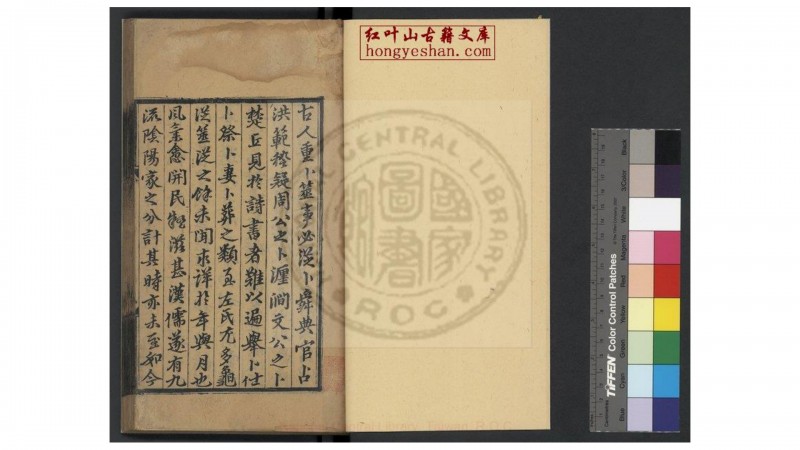 红叶山古籍文库
hongyeshan.com
古人重卜筮事必從卜舜典官占
洪範稽疑周公之卜瀍澗文公之卜
楚丘見於詩書者難以遍舉卜仕
卜祭卜妻卜葬之類互左氏尤多龜
從筮從之餘未聞求詳於年與月也
風氣愈開民秘滋甚漢儒遂有九
流陰陽家之分計其時亦未至如今
國家圖書
CENTRAL LIBRARY
ROC
TIFFEN Color Control Patches
Blue
Cyan
Green
Yellow
Red
Magenta
White
3/Color
Black